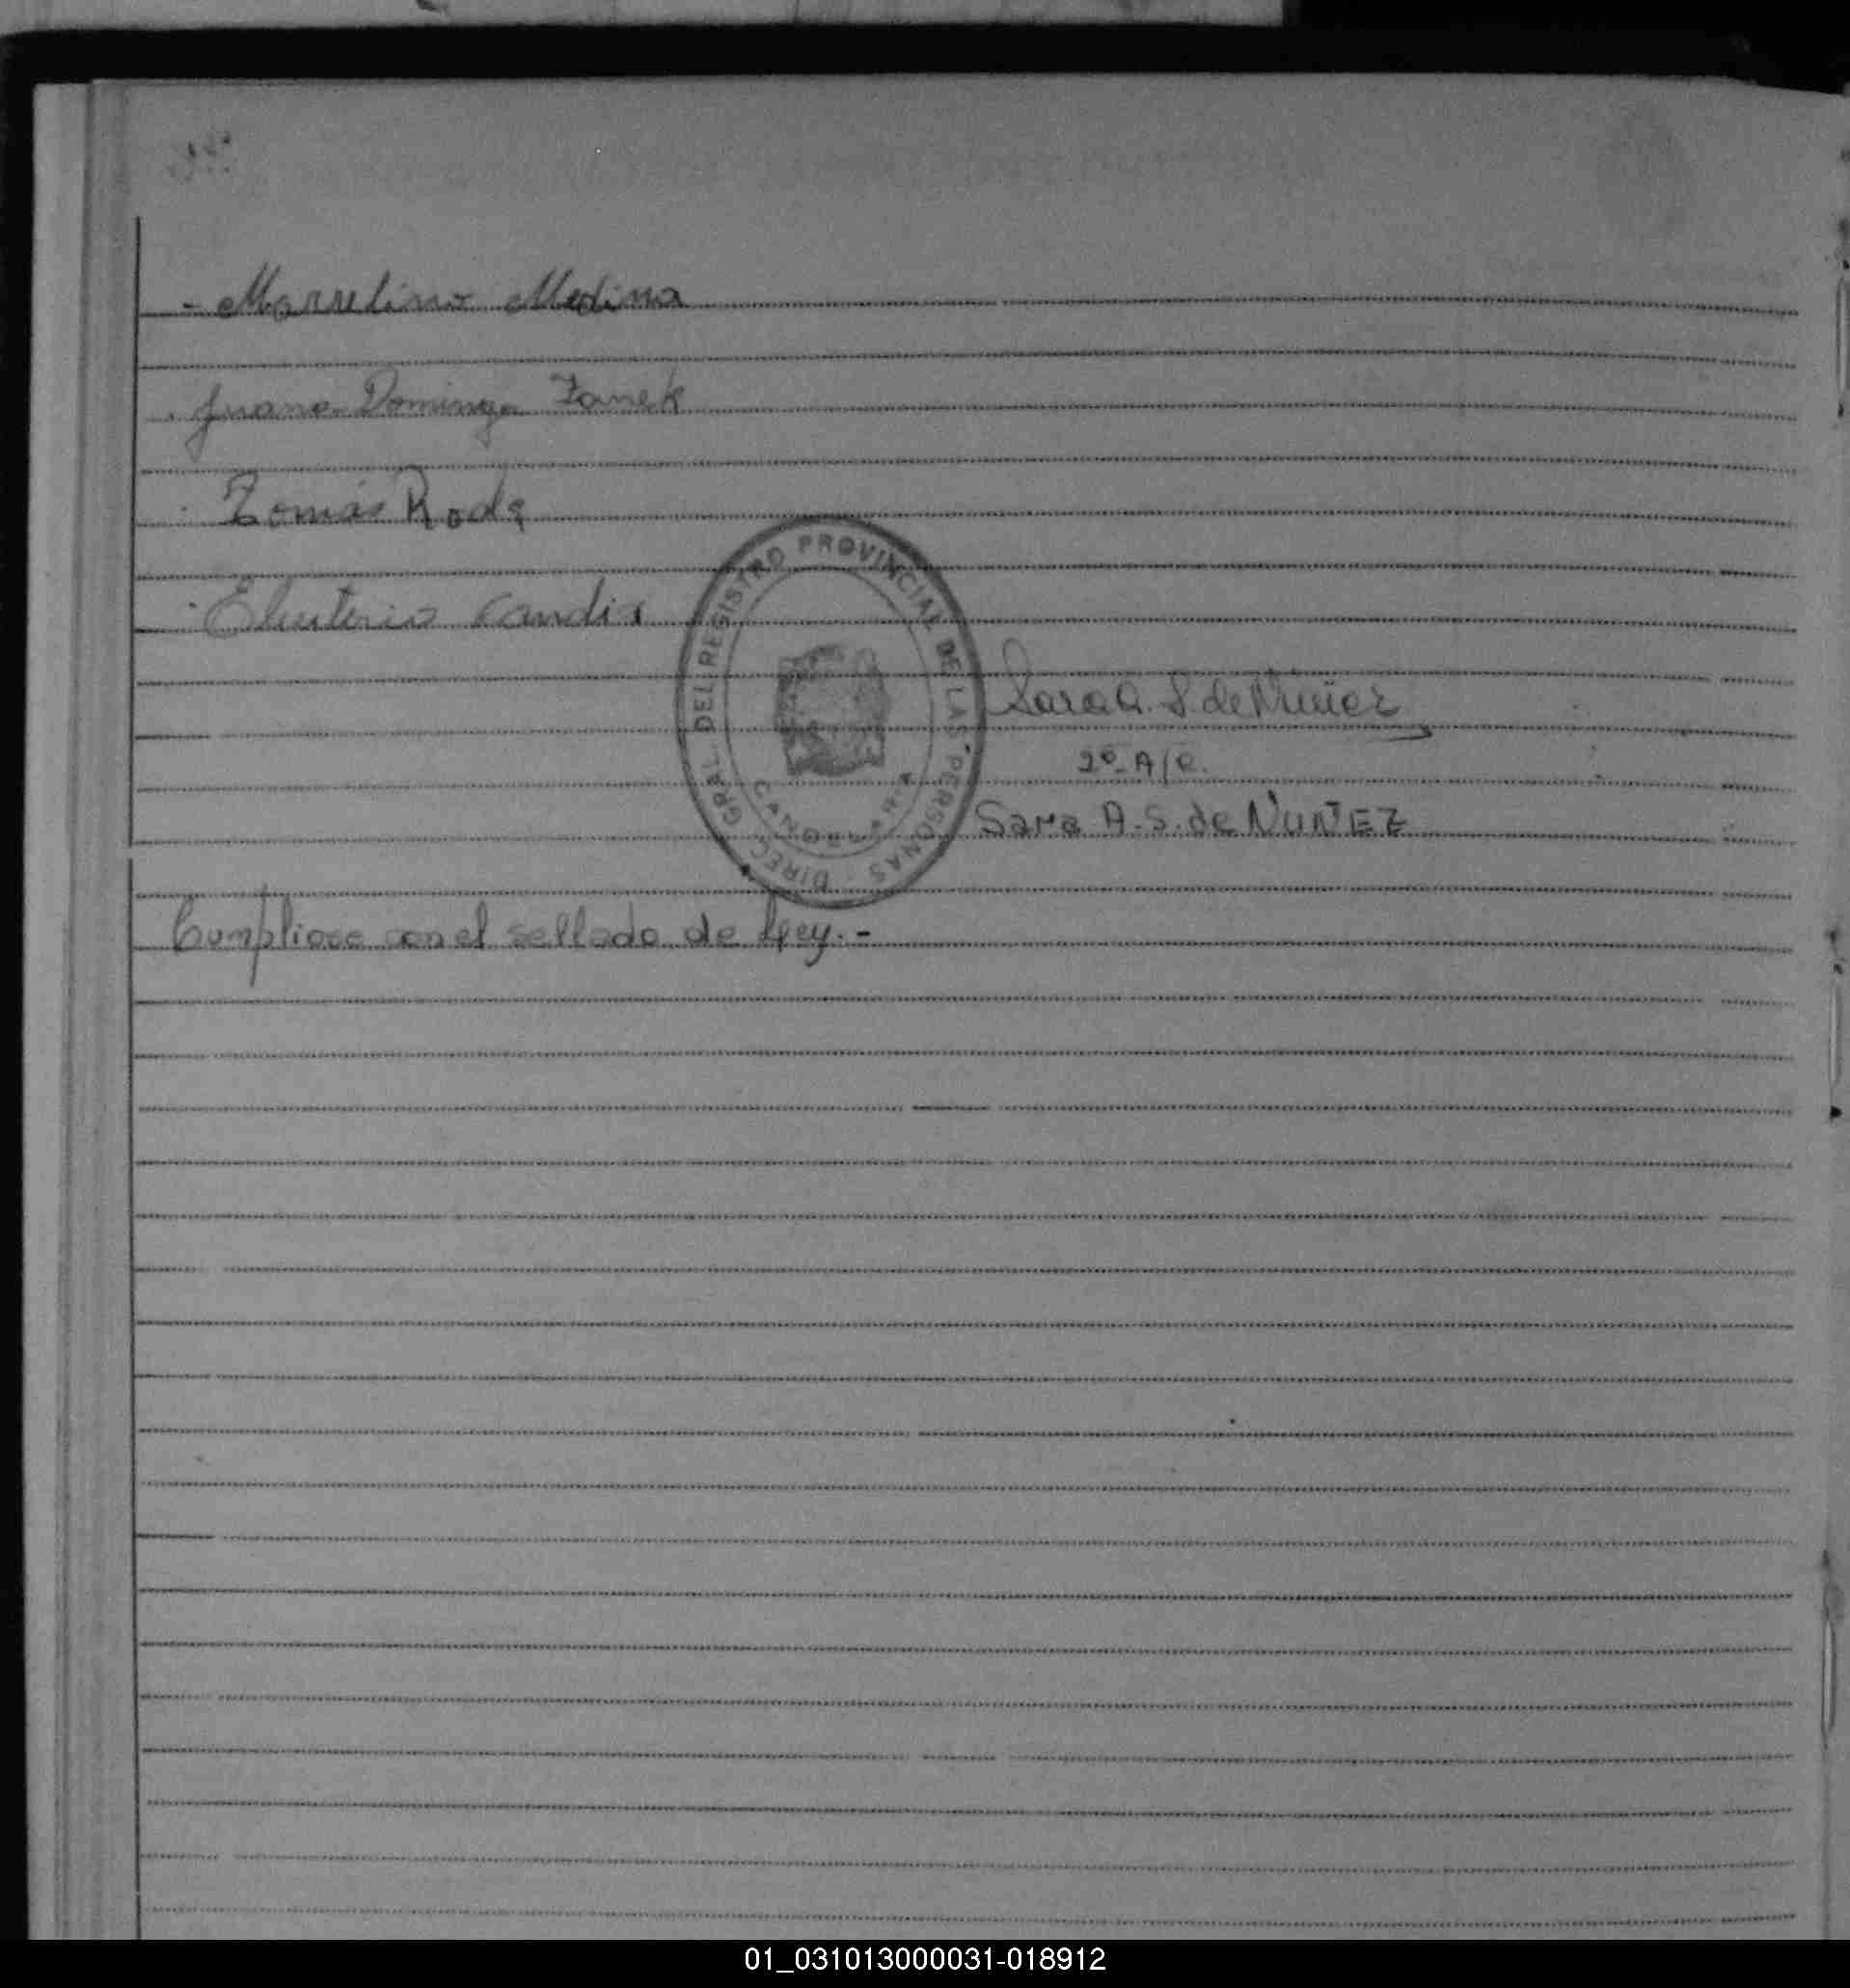 - Marcelino Medina
Juana Dominga Zanek
Tomás Rodg
Eleuterio Candia
DIREC. GRAL. DEL REGISTRO PROVINCIAL DE LAS PERSONAS
Sara A. S. de Nuñez
2º A/C.
Sara A. S. de NUÑEZ
Cumpliose con el sellado de Ley.-
01_031013000031-018912